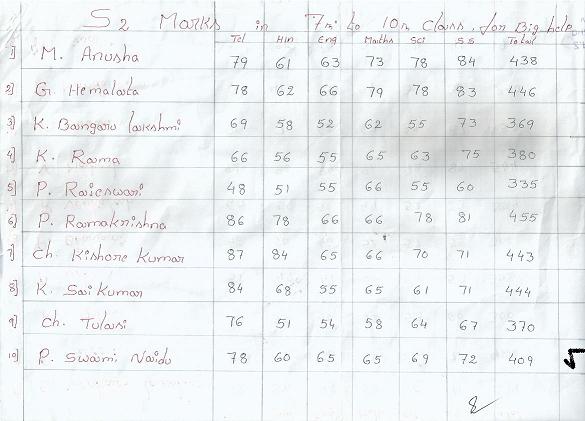 S2 Marks in 7th to 10th Class, for Big help
Tel Hin Eng Maths Sci S S Total
1] M. Anusha 79 61 63 73 78 84 438
2] G. Hemalata 78 62 66 79 78 83 446
3] K. Bangaru lakshmi 69 58 52 62 55 73 369
4] K. Rama 66 56 55 65 63 75 380
5] P. Rajeswari 48 51 55 66 55 60 335
6] P. Ramakrishna 86 78 66 66 78 81 455
7] Ch. Kishore Kumar 87 84 65 66 70 71 443
8] K. Sai Kumar 84 68 55 65 61 71 444
9] Ch. Tulasi 76 51 54 58 64 67 370
10] P. Swami Naidu 78 60 65 65 69 72 409